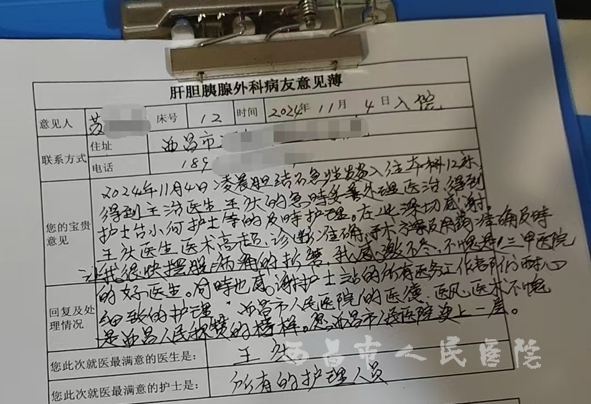 肝胆胰腺外科病友意见薄
意见人 苏 床号 12 时间 2024年11月4日入院
联系方式 住址 西昌市
电话 189
您的宝贵意见
2024年11月4日凌晨胆结石急性发入住本科12床,
得到主治医生王的及时妥善处理医治得到
护士台小何护士等的及时护理。在此深切感谢。
王医生医术高超,诊断准确,手术方案及用药准确及时
让我很快摆脱病痛的折磨 我感激不尽,不愧是三甲医院
的好医生。同时也感谢护士站的所有医务工作者们的耐心
回复及处理情况
细致的护理 西昌市人民医院的医德,医风,医术不愧
是西昌人民的榜样。愿西昌市人民医院更上一层。
您此次就医最满意的医生是: 王
您此次就医最满意的护士是: 所有的护理人员
西昌市人民医院